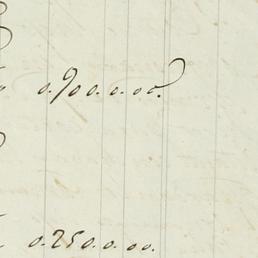 0.900.0.00.
0.250.0.00.